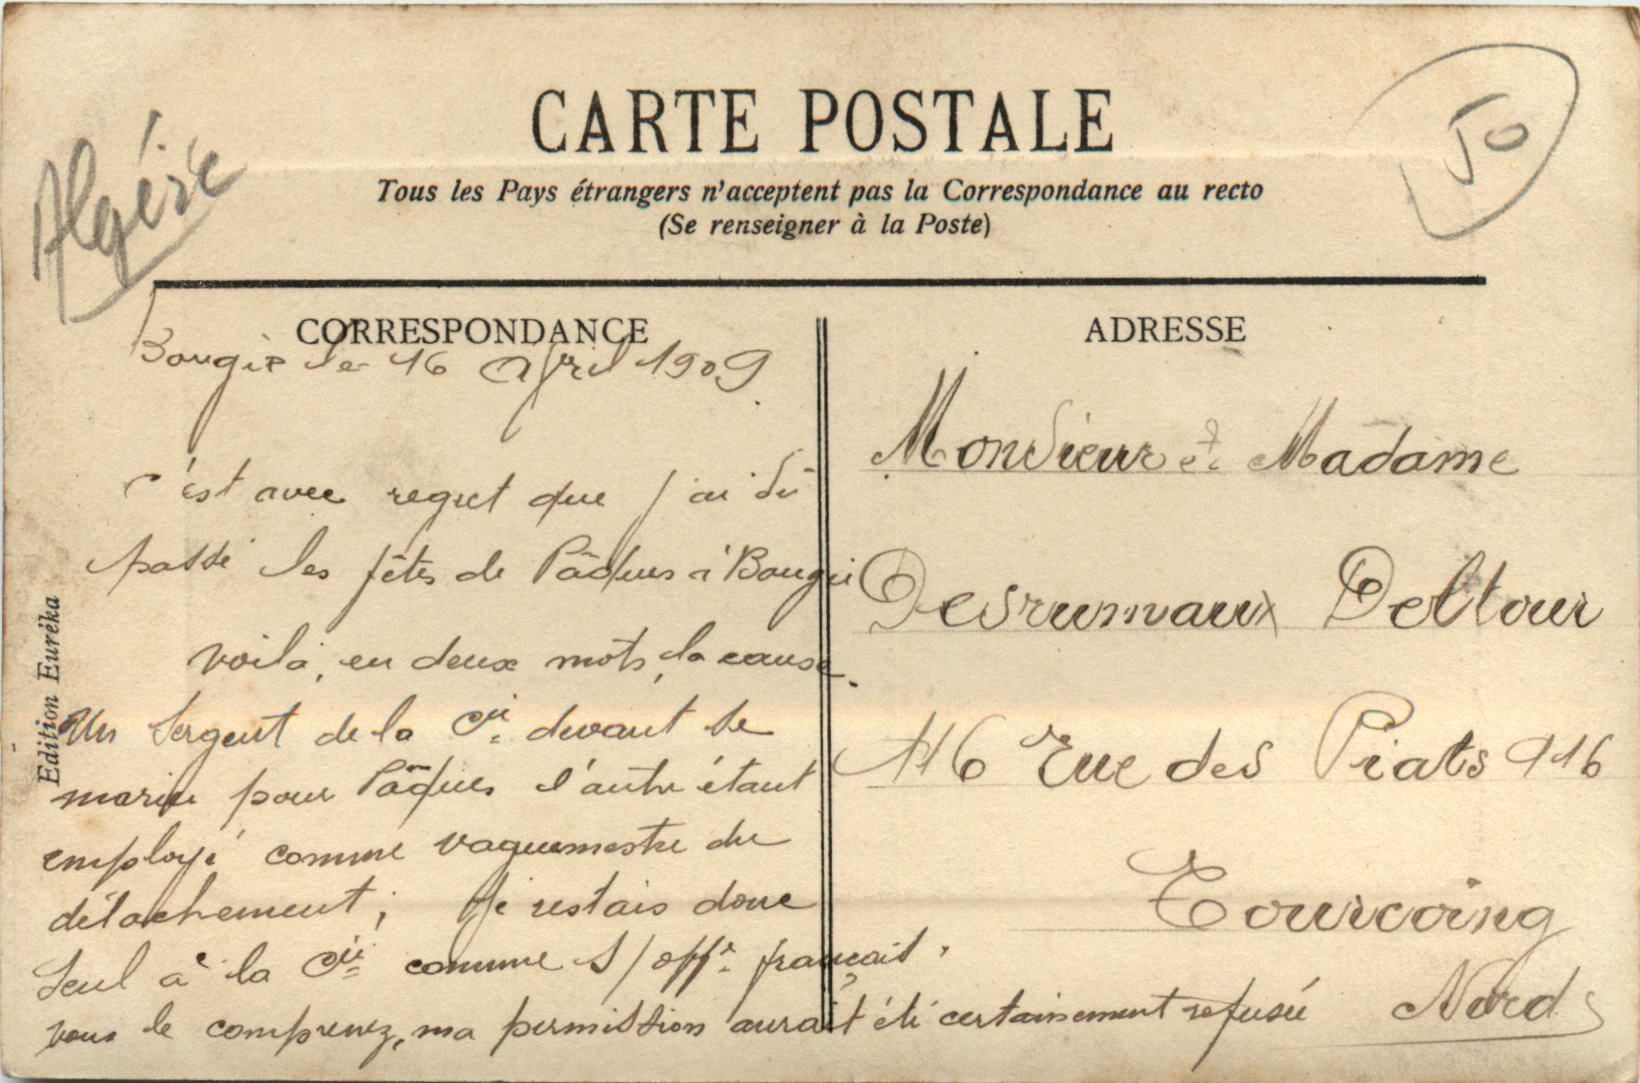 Algérie
50
CARTE POSTALE
Tous les Pays étrangers n'acceptent pas la Correspondance au recto
(Se renseigner à la Poste)
CORRESPONDANCE
Bougie le 16 Avril 1909
c'est avec regret que j'ai dû
passé les fêtes de Pâques à Bougie
voilà, en deux mots, la cause.
Un Sergent de la Cie devant se
marier pour Pâques l'autre étant
employé comme vaguemestre du
détachement; je restais donc
seul à la Cie comme s/offr français.
vous le comprenez, ma permission aurait été certainement refusée
Edition Euréka
ADRESSE
Monsieur et Madame
Desrumaux Deltour
116 Rue des Piats 116
Tourcoing
Nord